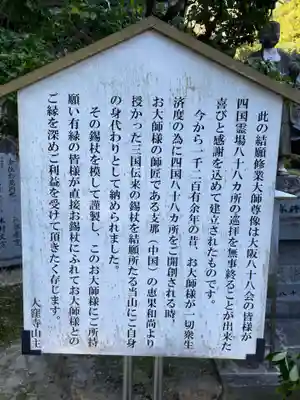 此の結願修業大師尊像は大阪八十八会の皆様が
四国霊場八十八カ所の巡拝を無事終ることが出来た
喜びと感謝を込めて建立されたものです。
今から一千二百有余年の昔、お大師様が一切衆生
済度の為に四国八十八カ所をご開創される時、
お大師様の師匠である支那（中国）の恵果和尚より
授かった三国伝来の錫杖を結願所たる当山にご自身
の身代わりとして納められました。
その錫杖を模して謹製し、このお大師様にご所持
願い有縁の皆様が直接お錫杖にふれてお大師様との
ご縁を深めご利益を受けて頂きたく存じます。
大窪寺山主